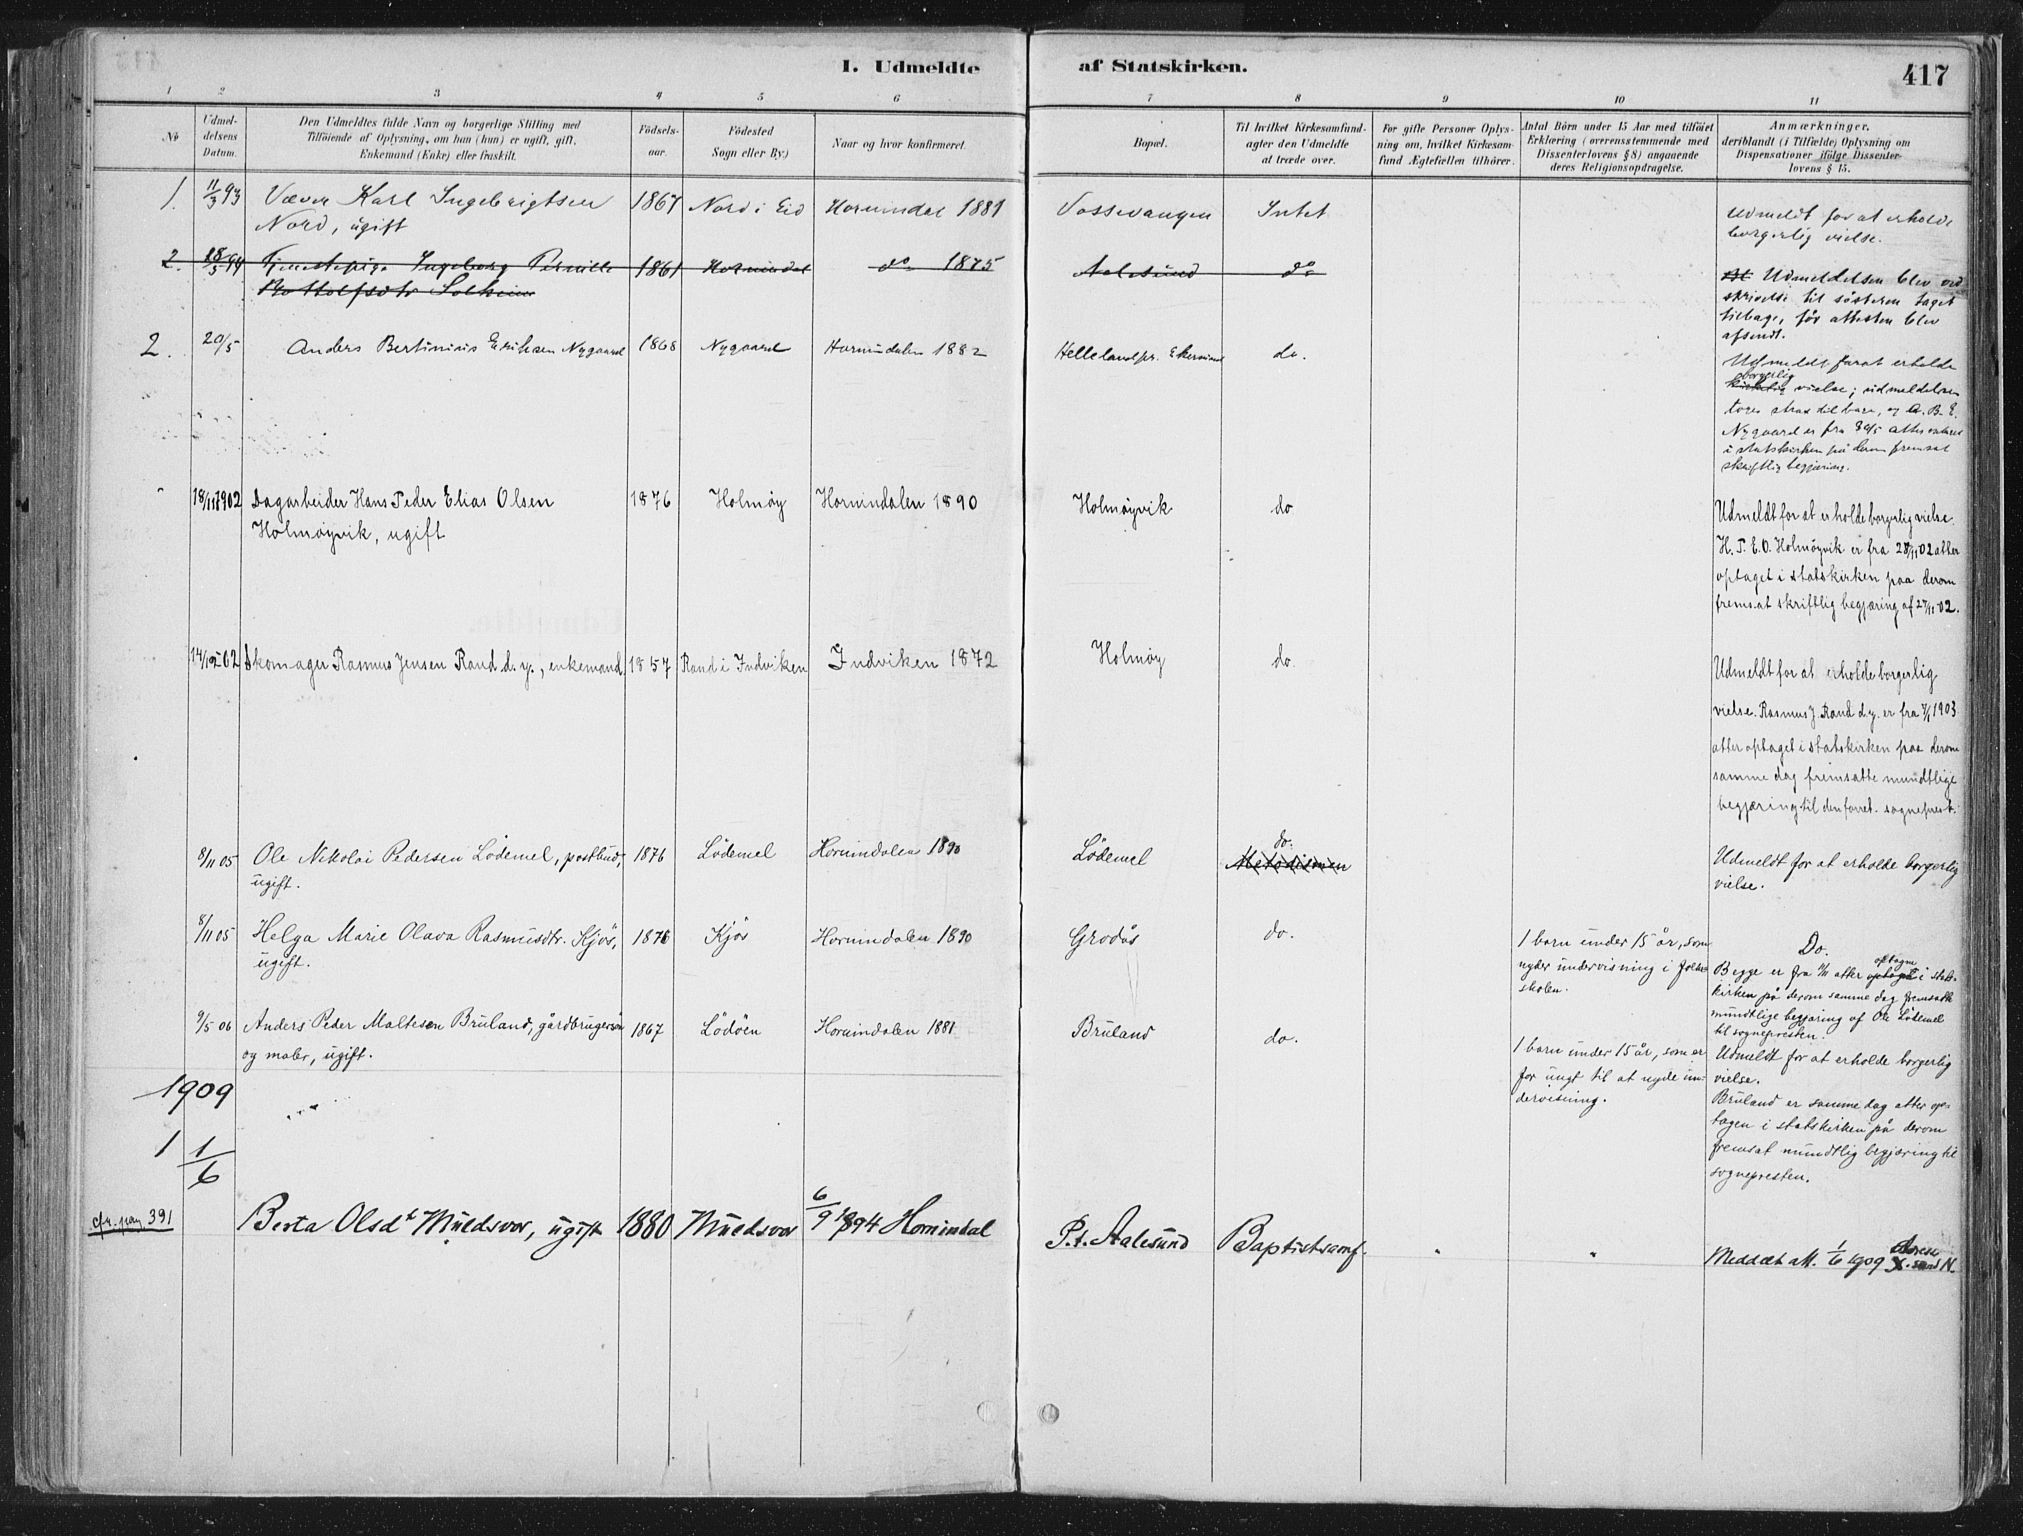 I. Udmeldte af Statskirken.
417
1 2 3 4 5 6 7 8 9 10 11
No
Udmel-
delsens
Datum.
Den Udmeldtes fulde Navn og borgerlige Stilling med
Tilföiende af Oplysning, om han (hun) er ugift, gift,
Enkemand (Enke) eller fraskilt.
Födsels-
aar.
Födested
Sogn eller By.)
Naar og hvor konfirmeret.
Bopæl.
Til hvilket Kirkesamfund-
agter den Udmeldte
at træde over.
For gifte Personer Oplys-
ning om, hvilket Kirkesam-
fund Ægtefællen tilhörer.
Antal Börn under 15 Aar med tilföiet
Erklæring (overensstemmende med
Dissenterlovens § 8) angaaende
deres Religionsopdragelse.
Anmærkninger,
deriblandt (i Tilfælde) Oplysning om
Dispensationer ifölge Dissenter-
lovens § 15.
1. 11/3 93 Væver Karl Ingebrigtsen 1867 Nord i Eid Hornindal 1881 Vossevangen Intet
Nord, ugift
Udmeldt for at erholde
borgerlig vielse.
2. 28/5 94 Tjenestepige Ingeborg Pernille 1861 Hornindal do 1875 Aalesund do
Rottolfsdtr Solheim
Udmeldelsen blev ved
skrivelse til søsteren taget
tilbage, før attesten blev
afsendt.
2. 20/5 Anders Bertinius Eriksen Nygaard 1868 Nygaard Hornindalen 1882 Hellelandpr. Ekersund do.
Udmeldt forat erholde
borgerlig
kirkelig vielse; udmeldelsen
toges strax tilbage, og A. B. E.
Nygaard er fra 30/5 atter optaget
i statskirken på derom fremsat
skriftlig begjæring.
18/11 1902 Dagarbeider Hans Peder Elias Olsen 1876 Holmøy Hornindalen 1890 Holmøyvik do
Holmøyvik, ugift
Udmeldt for at erholde borgerlig vielse.
H. P. E. O. Holmøyvik er fra 28/11 02 atter
optaget i statskirken paa derom
fremsat skriftlig begjæring af 27/11 02.
14/12 02 Skomager Rasmus Jensen Rand d. y., enkemand 1857 Rand i Indviken Indviken 1872 Holmøy do.
Udmeldt for at erholde borgerlig
vielse. Rasmus J. Rand d. y. er fra 7/1 1903
atter optaget i statskirken paa derom
samme dag fremsatte mundtlige
begjæring til den forret. sogneprest.
8/11 05 Ole Nikolai Pedersen Lødemel, postbud, 1876 Lødemel Hornindalen 1890 Lødemel do.
Metodismen
ugift.
Udmeldt for at erholde borgerlig
vielse.
8/11 05 Helga Marie Olava Rasmusdtr. Kjøs, 1876 Kjøs Hornindalen 1890 Grodås do.
ugift.
1 barn under 15 år, som
nyder undervisning i folke-
skolen.
Do.
optagne
Begge er fra 11/11 atter optaget i stats-
kirken på derom samme dag fremsatte
mundtlige begjæring af Ole Lødemel
til sognepresten.
9/5 06 Anders Peder Maltesen Bruland, gårdbrugersøn 1867 Lødøen Hornindalen 1881 Bruland do.
og maler, ugift.
1 barn under 15 år, som er
for ungt til at nyde un-
dervisning.
Udmeldt for at erholde borgerlig
vielse.
Bruland er samme dag atter op-
tagen i statskirken på derom
fremsat mundtlig begjæring til
sognepresten.
1909
1 1/6
cfr. pag. 391 Berta Olsdtr Muldsvor, ugift 1880 Muldsvor 6/9 1894 Hornindal P.t. Aalesund Baptistsamf. " "
Meddelt att. 1/6 1909